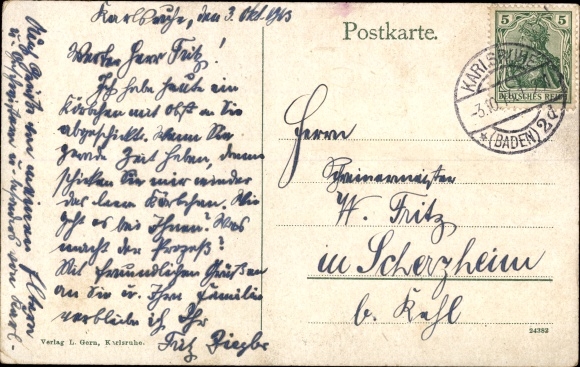 Karlsruhe, den 3. Okt. 1913
Werter Herr Fritz!
Ich habe heute ein
Körbchen mit Obst an Sie
abgeschickt. Wenn Sie
gerade Zeit haben, dann
schicken Sie mir wieder
das leere Körbchen. Wie
geht es bei Ihnen? Was
macht der Prozeß?
Mit freundlichen Grüßen
an Sie u. Ihre Familie
verbleibe ich Ihr
Fritz
Viele Grüße von meinen Eltern
u. Geschwistern u. besonders von
Verlag L. Gern, Karlsruhe.
Postkarte.
5 5
DEUTSCHES REICH
KARLSRUHE
-3.10.
*(BADEN) 2d
Herrn
Schreinermeister
W. Fritz
in Scherzheim
b. Kehl
24382